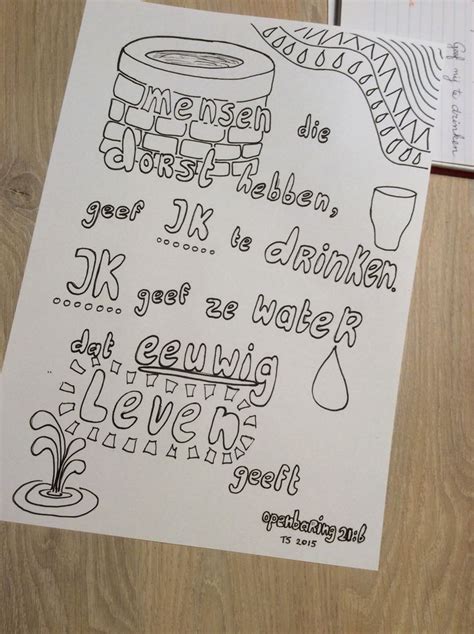 mensen die
dorst hebben,
geef IK te drinken.
IK geef ze water
dat eeuwig
Leven
geeft
openbaring 21:6
TS 2015
Gaf mij te drinken